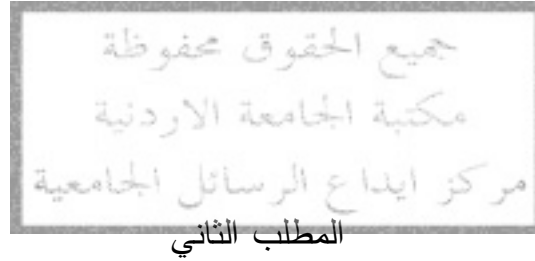 جميع الحقوق محفوظة
مكتبة الجامعة الاردنية
مركز ايداع الرسائل الجامعية
المطلب الثاني